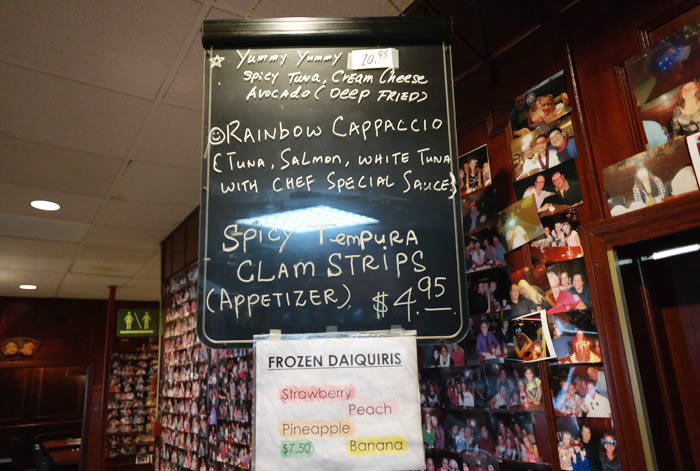 Yummy Yummy 10.95
Spicy Tuna, Cream Cheese
Avocado (Deep Fried)
Rainbow Cappaccio
(Tuna, Salmon, White Tuna
with Chef Special Sauce)
Spicy Tempura
Clam Strips
(Appetizer) $4.95
FROZEN DAIQUIRIS
Strawberry
Peach
Pineapple
$7.50 Banana